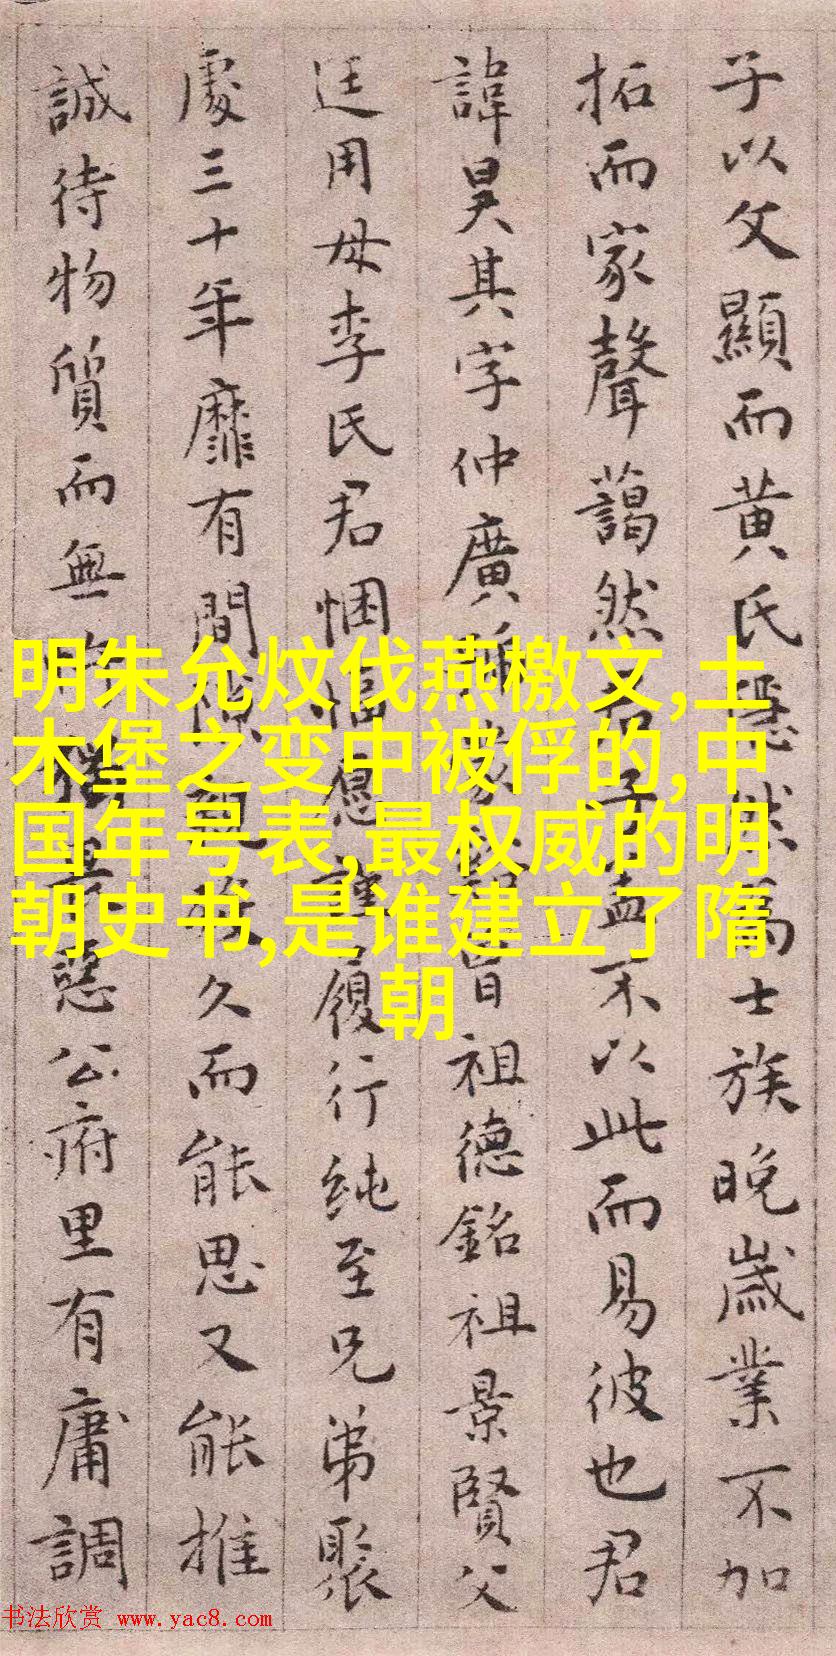 子以父顯而黄氏隱然為士族晚歲業不加
拓而家聲藹然君子盖不以此而易彼也君
諱昊其字仲廣曾祖德銘祖景賢父
廷用母李氏君悃愊愿謹履行纯至兄弟聚
處三十年靡有間久而能思又能推
誠待物質而無惡公府里有庸調
明朱允炆伐燕檄文,土
木堡之变中被俘的,中
国年号表,最权威的明
朝史书,是谁建立了隋
朝
书法欣赏 www.yac8.com